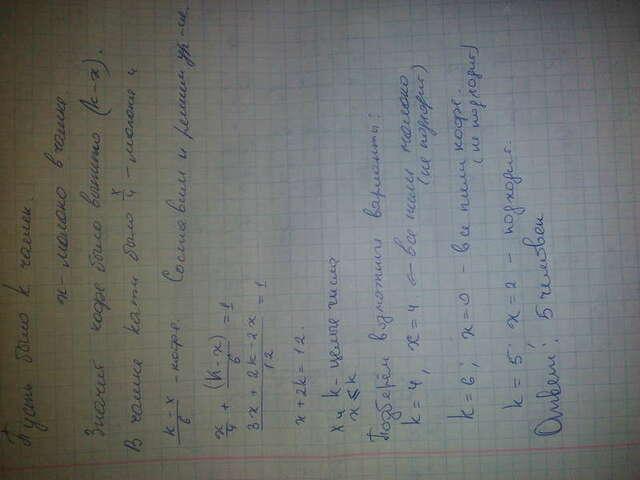 Пусть было k чашек.
x - молоко в чашке
Значит кофе было выпито (k-x).
В чашке Кати было x/4 - молока и
k-x/6 - кофе. Составим и решим ур-ие.
x/4 + (k-x)/6 = 1
3x + 2k - 2x/12 = 1
x+2k=12.
x и k - целые числа
x ≤ k
Подберём возможные варианты:
k=4, x=4 - все пили молоко
(не подходит)
k=6; x=0 - все пили кофе.
(не подходит)
k=5; x=2 - подходит.
Ответ: 5 человек